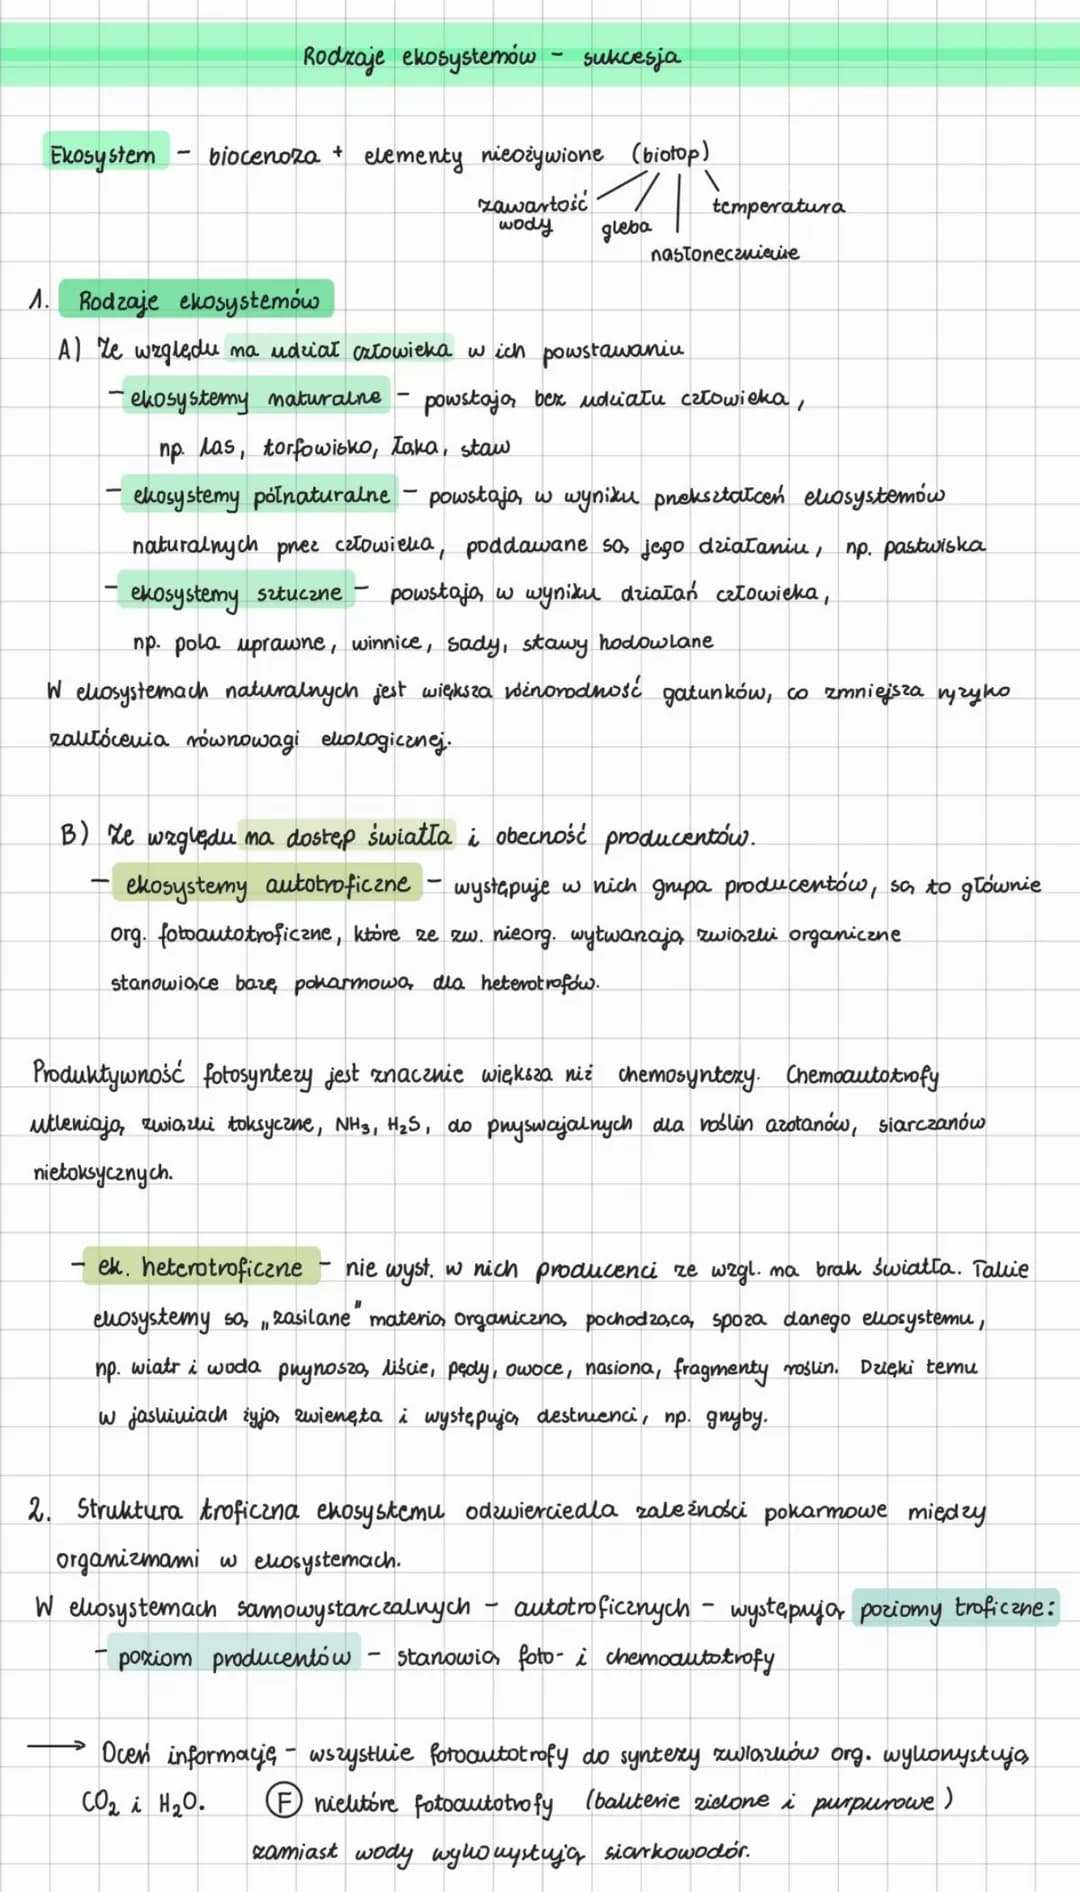 Rodzaje ekosystemów - sukcesja
Ekosystem - biocenoza + elementy nieożywione (biotop)
zawartość wody
gleba
nasłonecznienie
temperatura
1. Rodzaje ekosystemów
A) Ze względu na udział człowieka w ich powstawaniu
- ekosystemy naturalne - powstają bez udziału człowieka,
np. las, torfowisko, łąka, staw
- ekosystemy półnaturalne - powstają w wyniku przekształceń ekosystemów
naturalnych przez człowieka, poddawane są jego działaniu, np. pastwiska
- ekosystemy sztuczne - powstają w wyniku działań człowieka,
np. pola uprawne, winnice, sady, stawy hodowlane
W ekosystemach naturalnych jest większa różnorodność gatunków, co zmniejsza ryzyko
zakłócenia równowagi ekologicznej.
B) Ze względu na dostęp światła i obecność producentów.
- ekosystemy autotroficzne - występuje w nich grupa producentów, są to głównie
org. fotoautotroficzne, które ze zw. nieorg. wytwarzają związki organiczne
stanowiące bazę pokarmową dla heterotrofów.
Produktywność fotosyntezy jest znacznie większa niż chemosyntezy. Chemoautotrofy
utleniają związki toksyczne, NH₃, H₂S, do przyswajalnych dla roślin azotanów, siarczanów
nietoksycznych.
- ek. heterotroficzne - nie wyst. w nich producenci ze wzgl. na brak światła. Takie
ekosystemy są „zasilane" materią organiczną pochodzącą spoza danego ekosystemu,
np. wiatr i woda przynoszą liście, pędy, owoce, nasiona, fragmenty roślin. Dzięki temu
w jaskiniach żyją zwierzęta i występują destruenci, np. grzyby.
2. Struktura troficzna ekosystemu odzwierciedla zależności pokarmowe między
organizmami w ekosystemach.
W ekosystemach samowystarczalnych - autotroficznych - występują poziomy troficzne:
- poziom producentów - stanowią foto- i chemoautotrofy
→ Oceń informację - wszystkie fotoautotrofy do syntezy związków org. wykorzystują
CO₂ i H₂O. (F) niektóre fotoautotrofy (bakterie zielone i purpurowe)
zamiast wody wykorzystują siarkowodór.